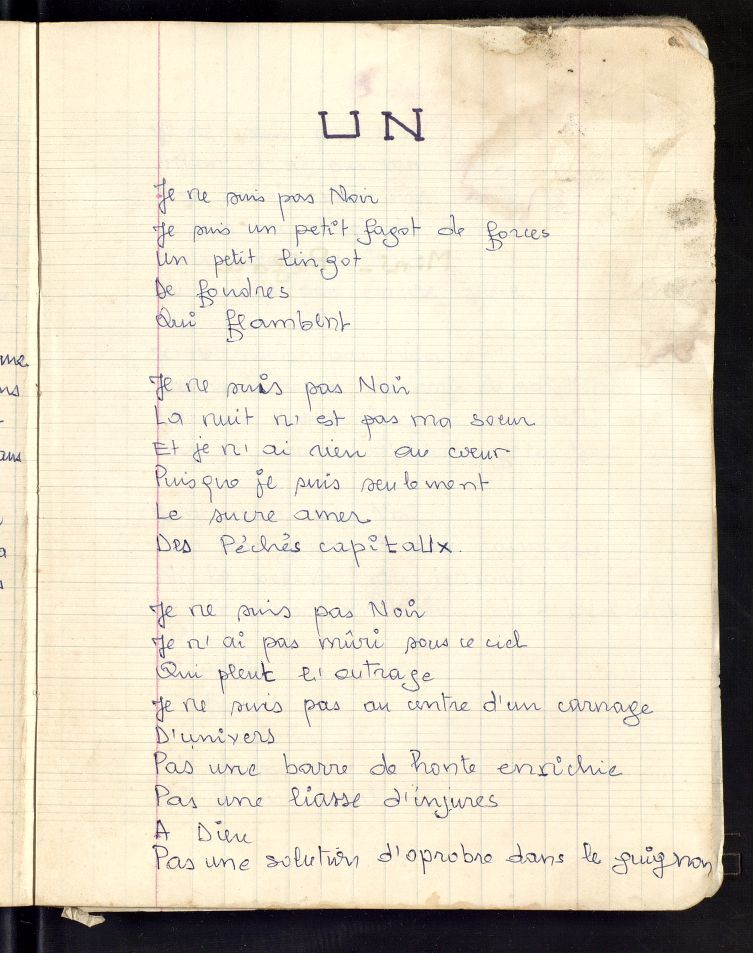 UN
Je ne suis pas Noir
Je suis un petit fagot de forces
Un petit lingot
De foudres
Qui flambent
Je ne suis pas Noir
La nuit n'est pas ma soeur
Et je n'ai rien au coeur
Puisque je suis seulement
Le sucre amer
Des Péchés capitaux.
Je ne suis pas Noir
Je n'ai pas mûri sous ce ciel
Qui pleut l'outrage
Je ne suis pas au centre d'un carnage
D'univers
Pas une barre de honte enrichie
Pas une liasse d'injures
A Dieu
Pas une solution d'oprobre dans le guignon